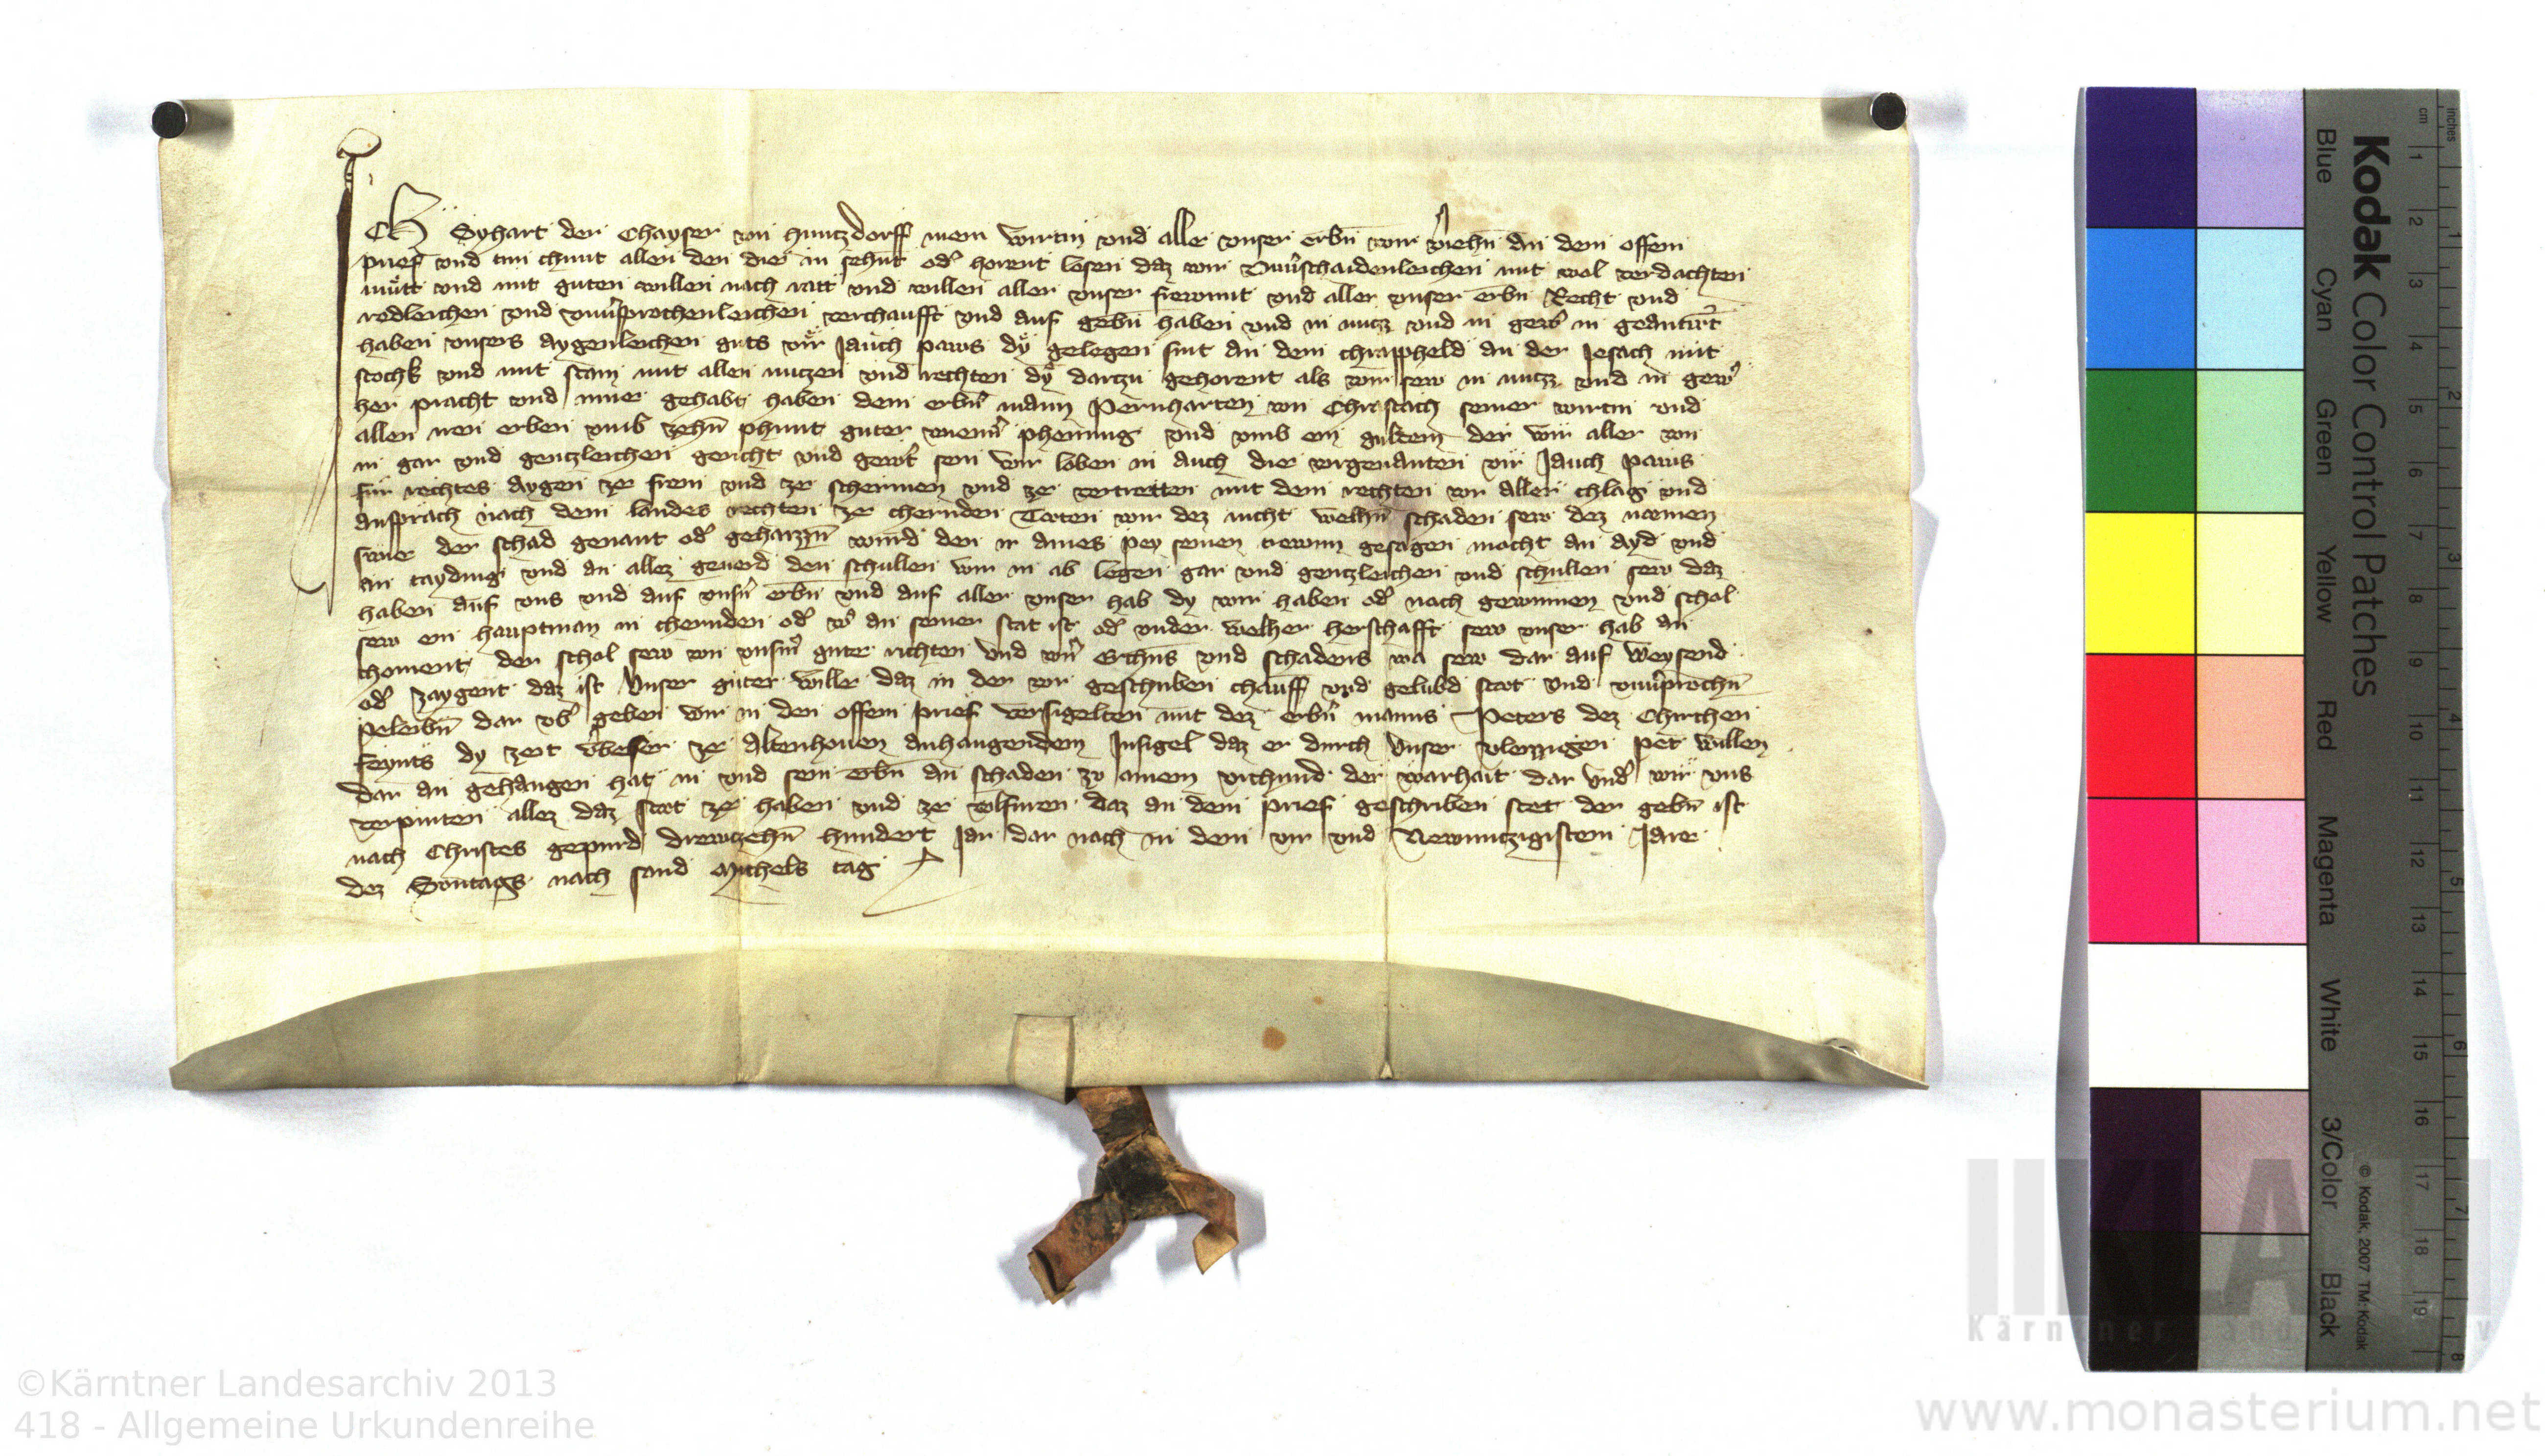 Ich Dyhart der Chayser von Huntzdorff mein wirtin vnd aller vnser erbn̄ wir v̓iehn̄ an dem offem
prief vnd tun chunt allen den die in sehnt od̓ horent lesen daz wir vnu̓schaidenleichen mit wol verdachten
mutt vnd mit guten willen nach ratt vnd willen aller vnser frewnnt vnd aller vnser erbn̄ Recht vnd
redleichen vnd vnu̓sprochenleichen verchaufft vnd auf gebn̄ haben vnd in nucz vnd in gewer in geantwrt
haben vnsers aygenleichen guts vir Jauch pawͦs dy gelegen sint an dem chrappheld an der Jesach mit
stochk vnd mit stam mit allen nuczen vnd rechten dy darczu gehorent als wir sew in nucz vnd in gewer
her pracht vnd inne gehabt haben dem erbn̄ mann Pernharten von Chrastach seiner wirtin vnd
allen iren erben vmb zehn̄ phunt guter phening vnd vmb ein guldein der wir aller von
in gar vnd genczleichen gericht vnd gewert sein wir loben in auch die vorgenanten vir Jauch pawͦs
fur rechtes aygen ze frein vnd ze schermen vnd ze vertretten mit dem rechten vor aller chlag vnd
ansprach nach dem landes rechten ze chernden Teten wir dez nicht welhn̄ schaden sew dez nemen
swie der schad genant od̓ gehaizzn̄ wurd den ir aines pey seinen trewnn gesagen mocht an ayd vnd
an tayding vnd an allez geuerd den schullen wir in ab legen gar vnd genczleichen vnd schullen sew daz
haben auf vns vnd auf vnsn̄ erbn̄ vnd auf aller vnser hab dy wir haben od̓ noch gewinnen vnd schol
sew ein hauptman in chernden od̓ wer an seiner stat ist od̓ vnder welher herschafft sew vnser hab an
choment der schol sew von vnserm guter richten vnd schadens wa sew dar auf weysend
od̓ zaygent daz ist vnser guter wille daz in der vor geschriben chauff vnd gelubd stet vnd vnu̓prochn̄
peleibn̄ dar vber geben wir in den offem prief versigelten mit dez erbn̄ manns Peters dez Chirchen
feynts dy zeit ze Altenhouen anhangendem Insigel daz er durch vnser vleizzigen pet willen
dar an gehangen hat in vnd sein erbn̄ an schaden zu ainem vrchund der warhait dar vnder wir vns
verpinten allez daz stet ze haben vnd ze volfuren daz an dem prief geschriben stet der gebn̄ ist
nach Christes gepurd drewczehn̄ hundert Jar dar nach in dem vir vnd Newnnczigistem Jare
dez Sontags nach sand Michels tag
Kodak Color Control Patches
Blue Cyan Green Yellow Red Magenta White 3/Color Black
© Kodak, 2007 TM: Kodak
inches 1 2 3 4 5 6 7 8
cm 1 2 3 4 5 6 7 8 9 10 11 12 13 14 15 16 17 18 19
©Kärntner Landesarchiv 2013
418 - Allgemeine Urkundenreihe
www.monasterium.net